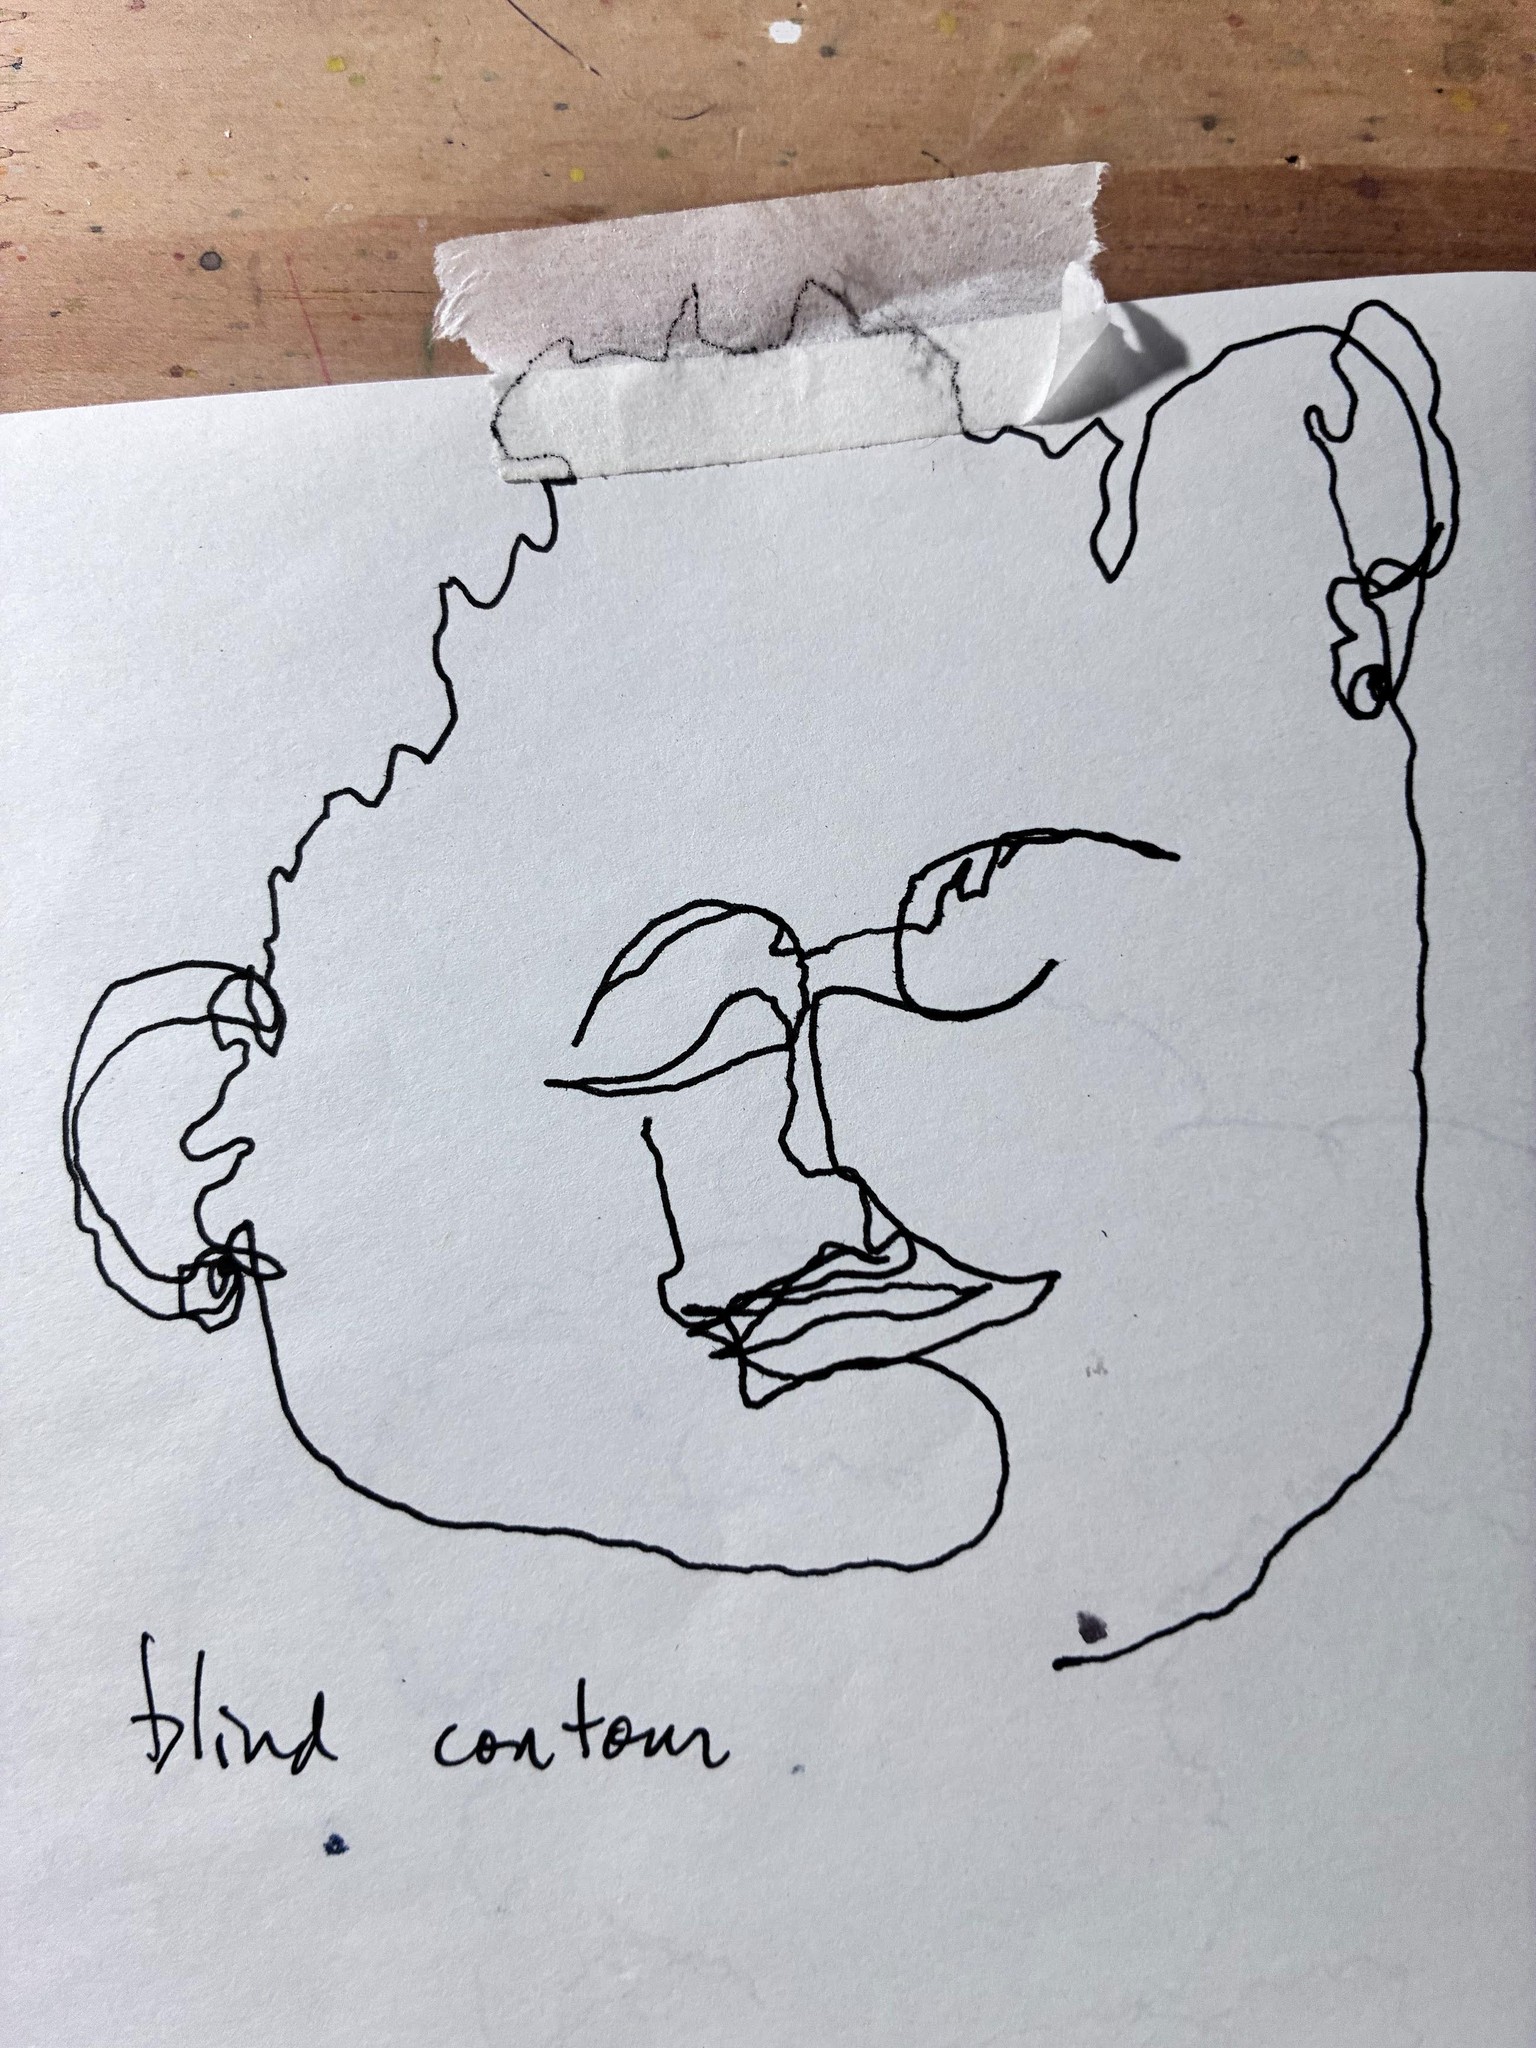 blind contour